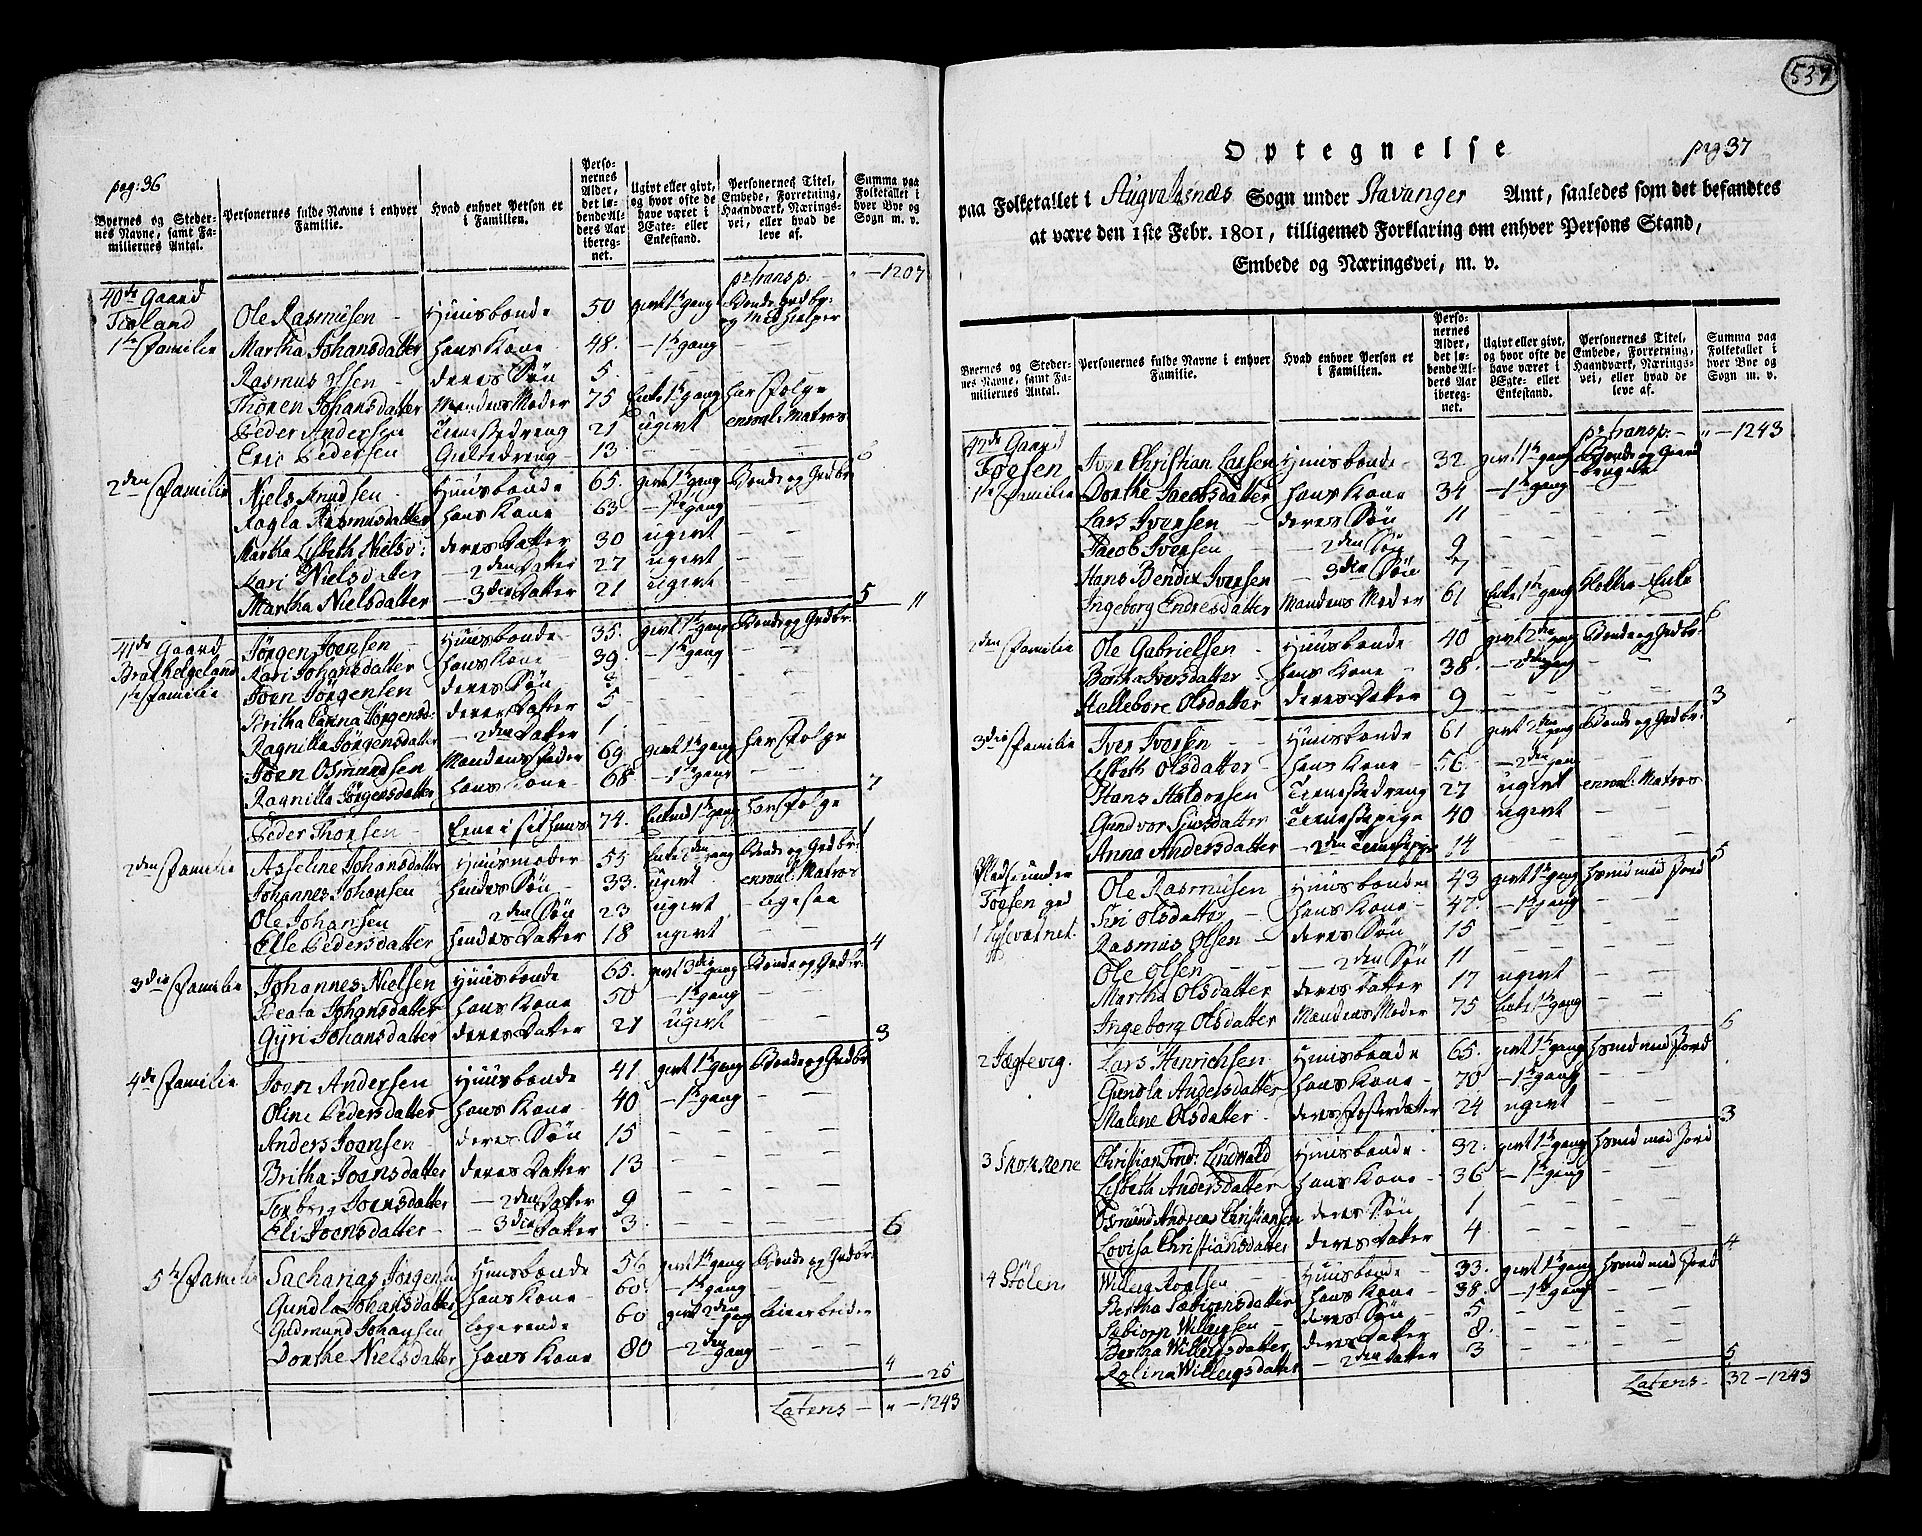 pag: 36
Byernes og Stedernes Navne, samt Familiernes Antal. | Personernes fulde Navne i enhver Familie. | Hvad enhver Person er i Familien. | Personernes Alder, det løbende Alders Aar iberegnet. | Ugivt eller givt, og hvor ofte de have været i Ægte- eller Enkestand. | Personernes Titel, Embede, Forretning, Haandværk, Næringsvei, eller hvad de leve af. | Summa paa Folketallet i hver Bye og Sogn m. v.
pr transp: - " - 1207
40de Gaard
1ste Familie
Ole Rasmusen - Huusbonde 50 givt 1te gang Bonde Grdbr. og Medhielper
Martha Johansdatter hans Kone 48. - 1te gang - -
Rasmus Olsen - deres Søn 5. - -
Thoren Johansdatter Mandens Moder 75 Enke 1te gang har Følge
Peder Andersen Tienestedreng 21 ugivt enroul. Matros
Eric Pedersen - 13 - - 6
2den Familie Niels Knudsen - Huusbonde 65. givt 1te gang Bonde og Grdbr
Ragla Rasmusdatter hans Kone 63 - 1te gang - -
Martha Lisbeth Nielsd: deres Datter 30 ugivt - -
Kari Nielsdatter - 2den Datter 27 ugivt - -
Martha Nielsdatter - 3die Datter 21 ugivt - - 5 - 11
41de Gaard
1te Familie
Jørgen Joensen - Huusbonde 35. givt 1te gang Bonde og Grdbr.
Kari Johansdatter hans Kone 39. - 1te gang - -
Joen Jørgensen deres Søn
Britha Jørgensd: deres Datter 5 - -
Ragnilla Jørgensdatter - 2den Datter 1. - -
Joen Osmundsen Mandens Fader 69 givt 1te gang har Følge
Ragnilla Jørgensdatter hans Kone 68 - 1te gang - - 7
Peder Thorsen - 74. Enkemd 1te gang har Følge 1
2den Familie Asseline Johansdatter Huusmoder 55 Enke 2den gang Bonde og Grdbr.
Johannes Johansen hendes Søn 33. ugivt enroul. Matros
Ole Johansen - 2den Søn 23 ugivt - ligesaa
Elle Pedersdatter hendes Datter 18 ugivt - - 4
3die Familie Johannes Nielsen Huusbonde 65. givt 3die gang Bonde og Grdbr
Beata Johansdatter hans Kone 50 - 1te gang - -
Gyri Johansdatter deres Datter 21 ugivt - - 3
4de Familie Joen Andersen Huusbonde 41 givt 1te gang Bonde og Grdbr
Oline Pedersdatter hans Kone 40 - 1te gang - -
Anders Joensen deres Søn 15 - -
Britha Joensdatter deres Datter 13 - -
Torberg Joensdatter - 2den Datter 9 - -
Eli Joensdatter - - 3die Datter 3. - - 6
5te Familie Sacharias Jørgensen Huusbonde 56 givt 1te gang Bonde og Grdbr.
Gundla Johansdatter hans Kone - 60. - 1te gang - -
Gudmund Johansen logerende 60 givt 2den gang
Dorthe Nielsdatter hans Kone 80 - 2den gang - - 4 25
Latens - " - 1243
537
Optegnelse pag 37
paa Folketallet i Augvalsnæs Sogn under Stavanger Amt, saaledes som det befandtes
at være den 1ste Febr. 1801, tilligemed Forklaring om enhver Persons Stand,
Embede og Næringsvei, m. v.
Byernes og Stedernes Navne, samt Familiernes Antal. | Personernes fulde Navne i enhver Familie. | Hvad enhver Person er i Familien. | Personernes Alder, det løbende Alders Aar iberegnet. | Ugivt eller givt, og hvor ofte de have været i Ægte- eller Enkestand. | Personernes Titel, Embede, Forretning, Haandværk, Næringsvei, eller hvad de leve af. | Summa paa Folketallet i hver Bye og Sogn m. v.
pr transp: - " - 1243
42de Gaard
1te Familie
Iver Christian Larsen Huusbonde 32. givt 1te gang Bonde og Gaard bruger
Dorthe Jacobsdatter hans Kone 34 - 1te gang - -
Lars Iversen - deres Søn 11 - -
Jacob Iversen - 2den Søn 9 - -
Hans Bendix Iversen - 3die Søn 7 - -
Ingeborg Endresdatter Mandens Moder 61 Enke 1te gang Klokker Enke 6
2den Familie Ole Gabrielsen - Huusbonde 40 givt 2den gang Bonde og Grdbr.
Berthe Iversdatter - hans Kone - 38. - 2den gang - -
Hallebore Olsdatter deres Datter 9 - - 3
3die Familie Iver Iversen - Huusbonde 61 givt 2den gang Bonde og Grdbr.
Lisbeth Olsdatter hans Kone - 56. - 2den gang - -
Hans Haldorsen Tienestedreng 27 ugivt enroul. Matros
Gundvor Siursdatter Tienestepige 40 ugivt - -
Anna Andersdatter - 2den Tienstepige 14 - - 5
Pladse under
Ole Rasmusen Huusbonde 43 givt 1te gang Husmd med Jord
Siri Olsdatter hans Kone - 47. - 1te gang - -
Rasmus Olsen - deres Søn 15 - -
Ole Olsen - - 2den Søn 11 - -
Martha Olsdatter deres Datter 17 ugivt - -
Ingeborg Olsdatter Mandens Moder 75 Enke 1te gang - - 6
2 Lars Henrichsen Huusbonde 65. givt 1te gang Husmd med Jord
Gundla Andersdatter hans Kone - 70 - 1te gang - -
Malene Olsdatter - deres Fosterdatter 24 ugivt - - 3
3 Christian Fredr: Lindwald Huusbonde 32. givt 1te gang Husmd med Jord
Lisbeth Andersdatter hans Kone - 36 - 1te gang - -
Osmund Andreas Christiansen deres Søn 1 - -
Lovisa Christiansdatter deres Datter 4 - - 4
4 Stølen Willeig Roalsen Huusbonde - 33. givt 1te gang Husmd med Jord
Bertha Sebiornsdatter hans Kone - 38. - 1te gang - -
Sebiorn Willeigsen - deres Søn 5 - -
Bertha Willeigsdatter deres Datter 8. - -
Rolina Willeigsdatter - 2den Datter 3 - - 5
Latens - 32 - 1243